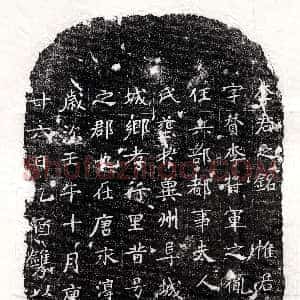 李君之銘 惟君
字贊李將軍之胤
任兵部都事夫人
氏葬於冀州阜城
城鄉孝行里昔号
之郡也在唐永淳
歲次壬午十月庚
廿六日乙酉雙以